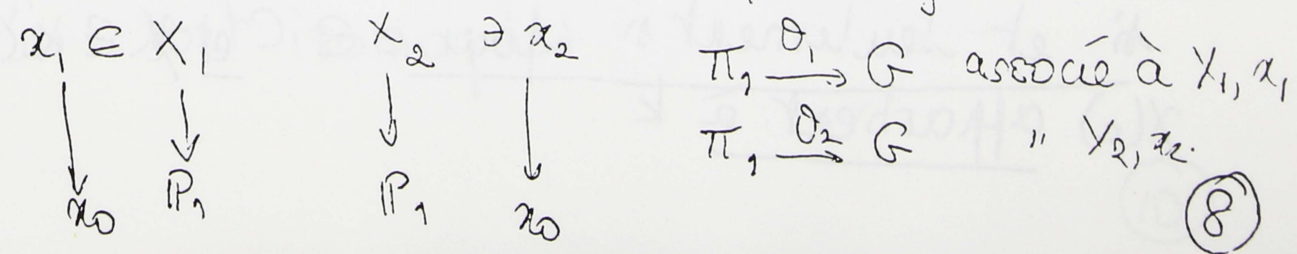 x₁ ∈ X₁ X₂ ∋ x₂ Π₁ —θ₁→ G associé à X₁, x₁
Π₁ —θ₂→ G " X₂, x₂.
↓ ↓ ↓ ↓
x₀ ℙ₁ ℙ₁ x₀
⑧